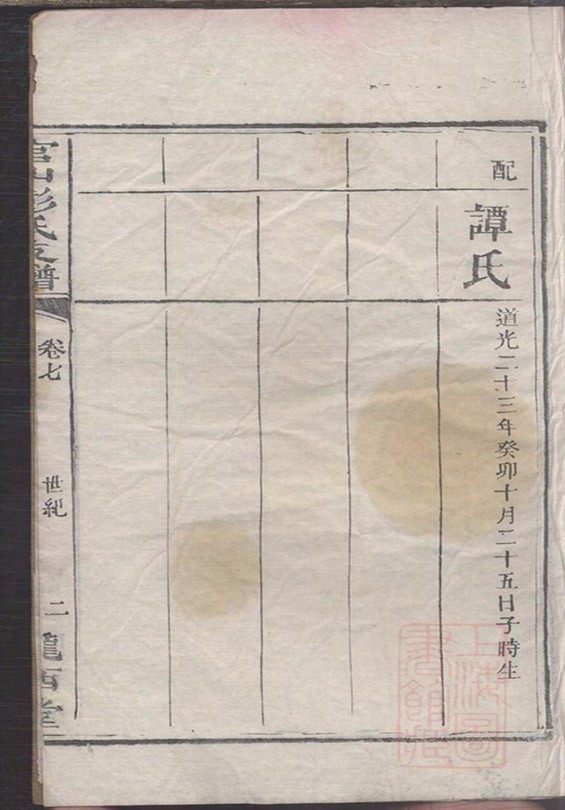 配
譚氏
道光二十三年癸卯十月二十五日子時生
彭氏支譜
卷七
世紀
二
隴西堂
上海圖書館藏